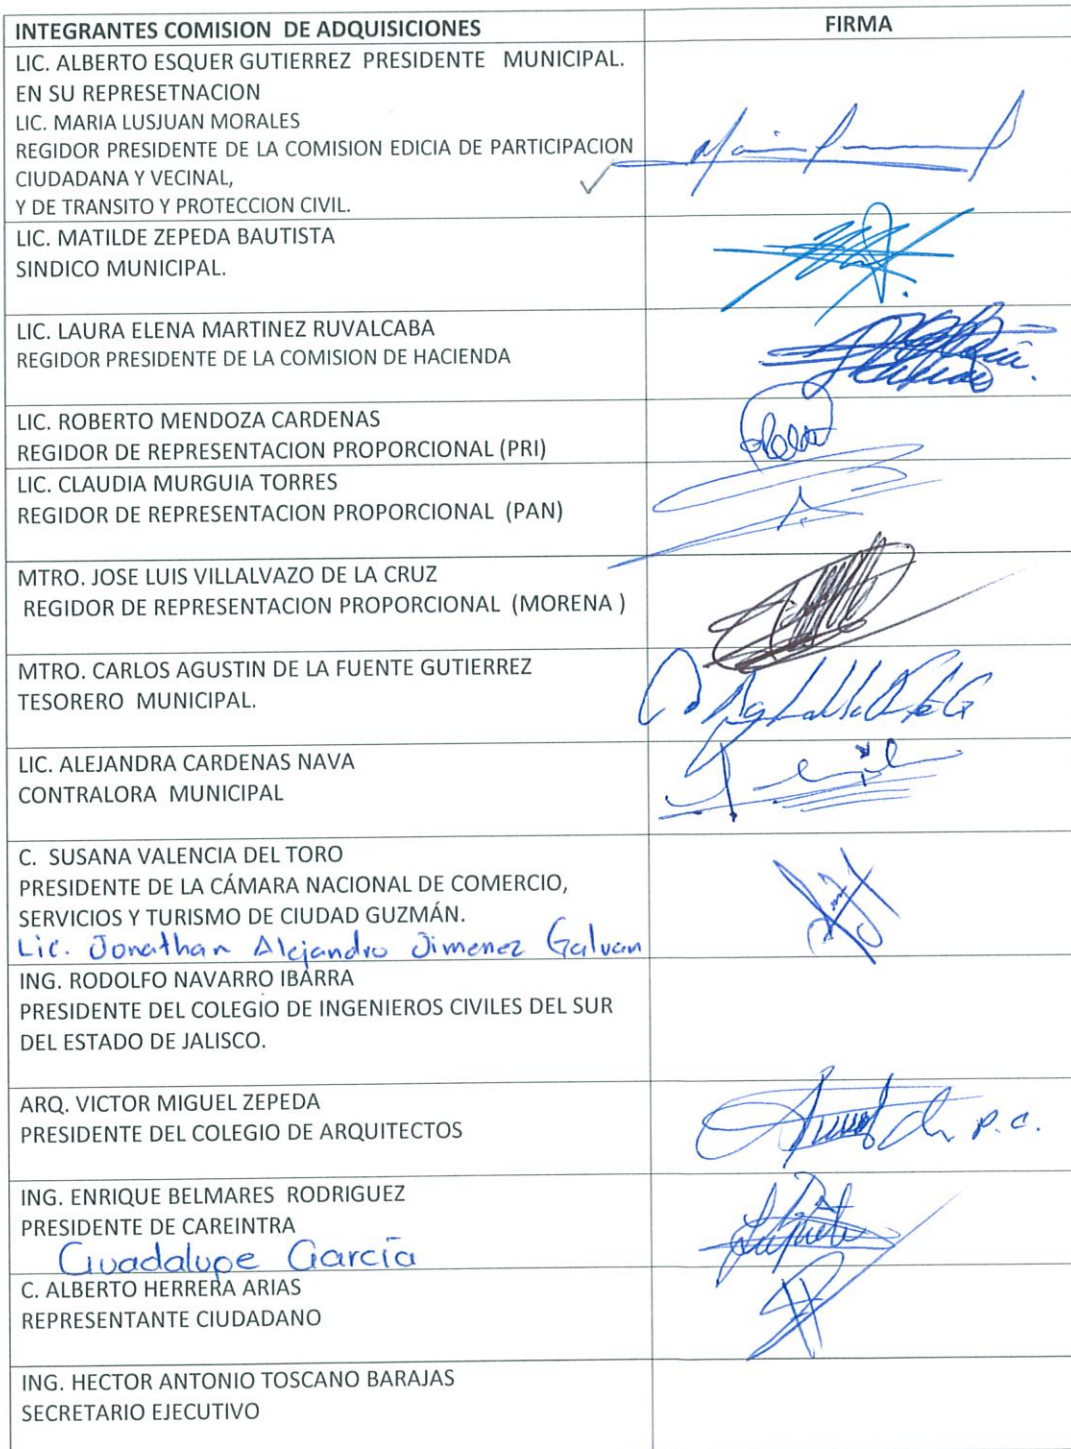 INTEGRANTES COMISION DE ADQUISICIONES FIRMA
LIC. ALBERTO ESQUER GUTIERREZ PRESIDENTE MUNICIPAL.
EN SU REPRESETNACION
LIC. MARIA LUSJUAN MORALES
REGIDOR PRESIDENTE DE LA COMISION EDICIA DE PARTICIPACION
CIUDADANA Y VECINAL,
Y DE TRANSITO Y PROTECCION CIVIL.
LIC. MATILDE ZEPEDA BAUTISTA
SINDICO MUNICIPAL.
LIC. LAURA ELENA MARTINEZ RUVALCABA
REGIDOR PRESIDENTE DE LA COMISION DE HACIENDA
LIC. ROBERTO MENDOZA CARDENAS
REGIDOR DE REPRESENTACION PROPORCIONAL (PRI)
LIC. CLAUDIA MURGUIA TORRES
REGIDOR DE REPRESENTACION PROPORCIONAL (PAN)
MTRO. JOSE LUIS VILLALVAZO DE LA CRUZ
REGIDOR DE REPRESENTACION PROPORCIONAL (MORENA )
MTRO. CARLOS AGUSTIN DE LA FUENTE GUTIERREZ
TESORERO MUNICIPAL.
LIC. ALEJANDRA CARDENAS NAVA
CONTRALORA MUNICIPAL
C. SUSANA VALENCIA DEL TORO
PRESIDENTE DE LA CÁMARA NACIONAL DE COMERCIO,
SERVICIOS Y TURISMO DE CIUDAD GUZMÁN.
Lic. Jonathan Alejandro Jimenez Galvan
ING. RODOLFO NAVARRO IBARRA
PRESIDENTE DEL COLEGIO DE INGENIEROS CIVILES DEL SUR
DEL ESTADO DE JALISCO.
ARQ. VICTOR MIGUEL ZEPEDA
PRESIDENTE DEL COLEGIO DE ARQUITECTOS
p.a.
ING. ENRIQUE BELMARES RODRIGUEZ
PRESIDENTE DE CAREINTRA
Guadalupe García
C. ALBERTO HERRERA ARIAS
REPRESENTANTE CIUDADANO
ING. HECTOR ANTONIO TOSCANO BARAJAS
SECRETARIO EJECUTIVO